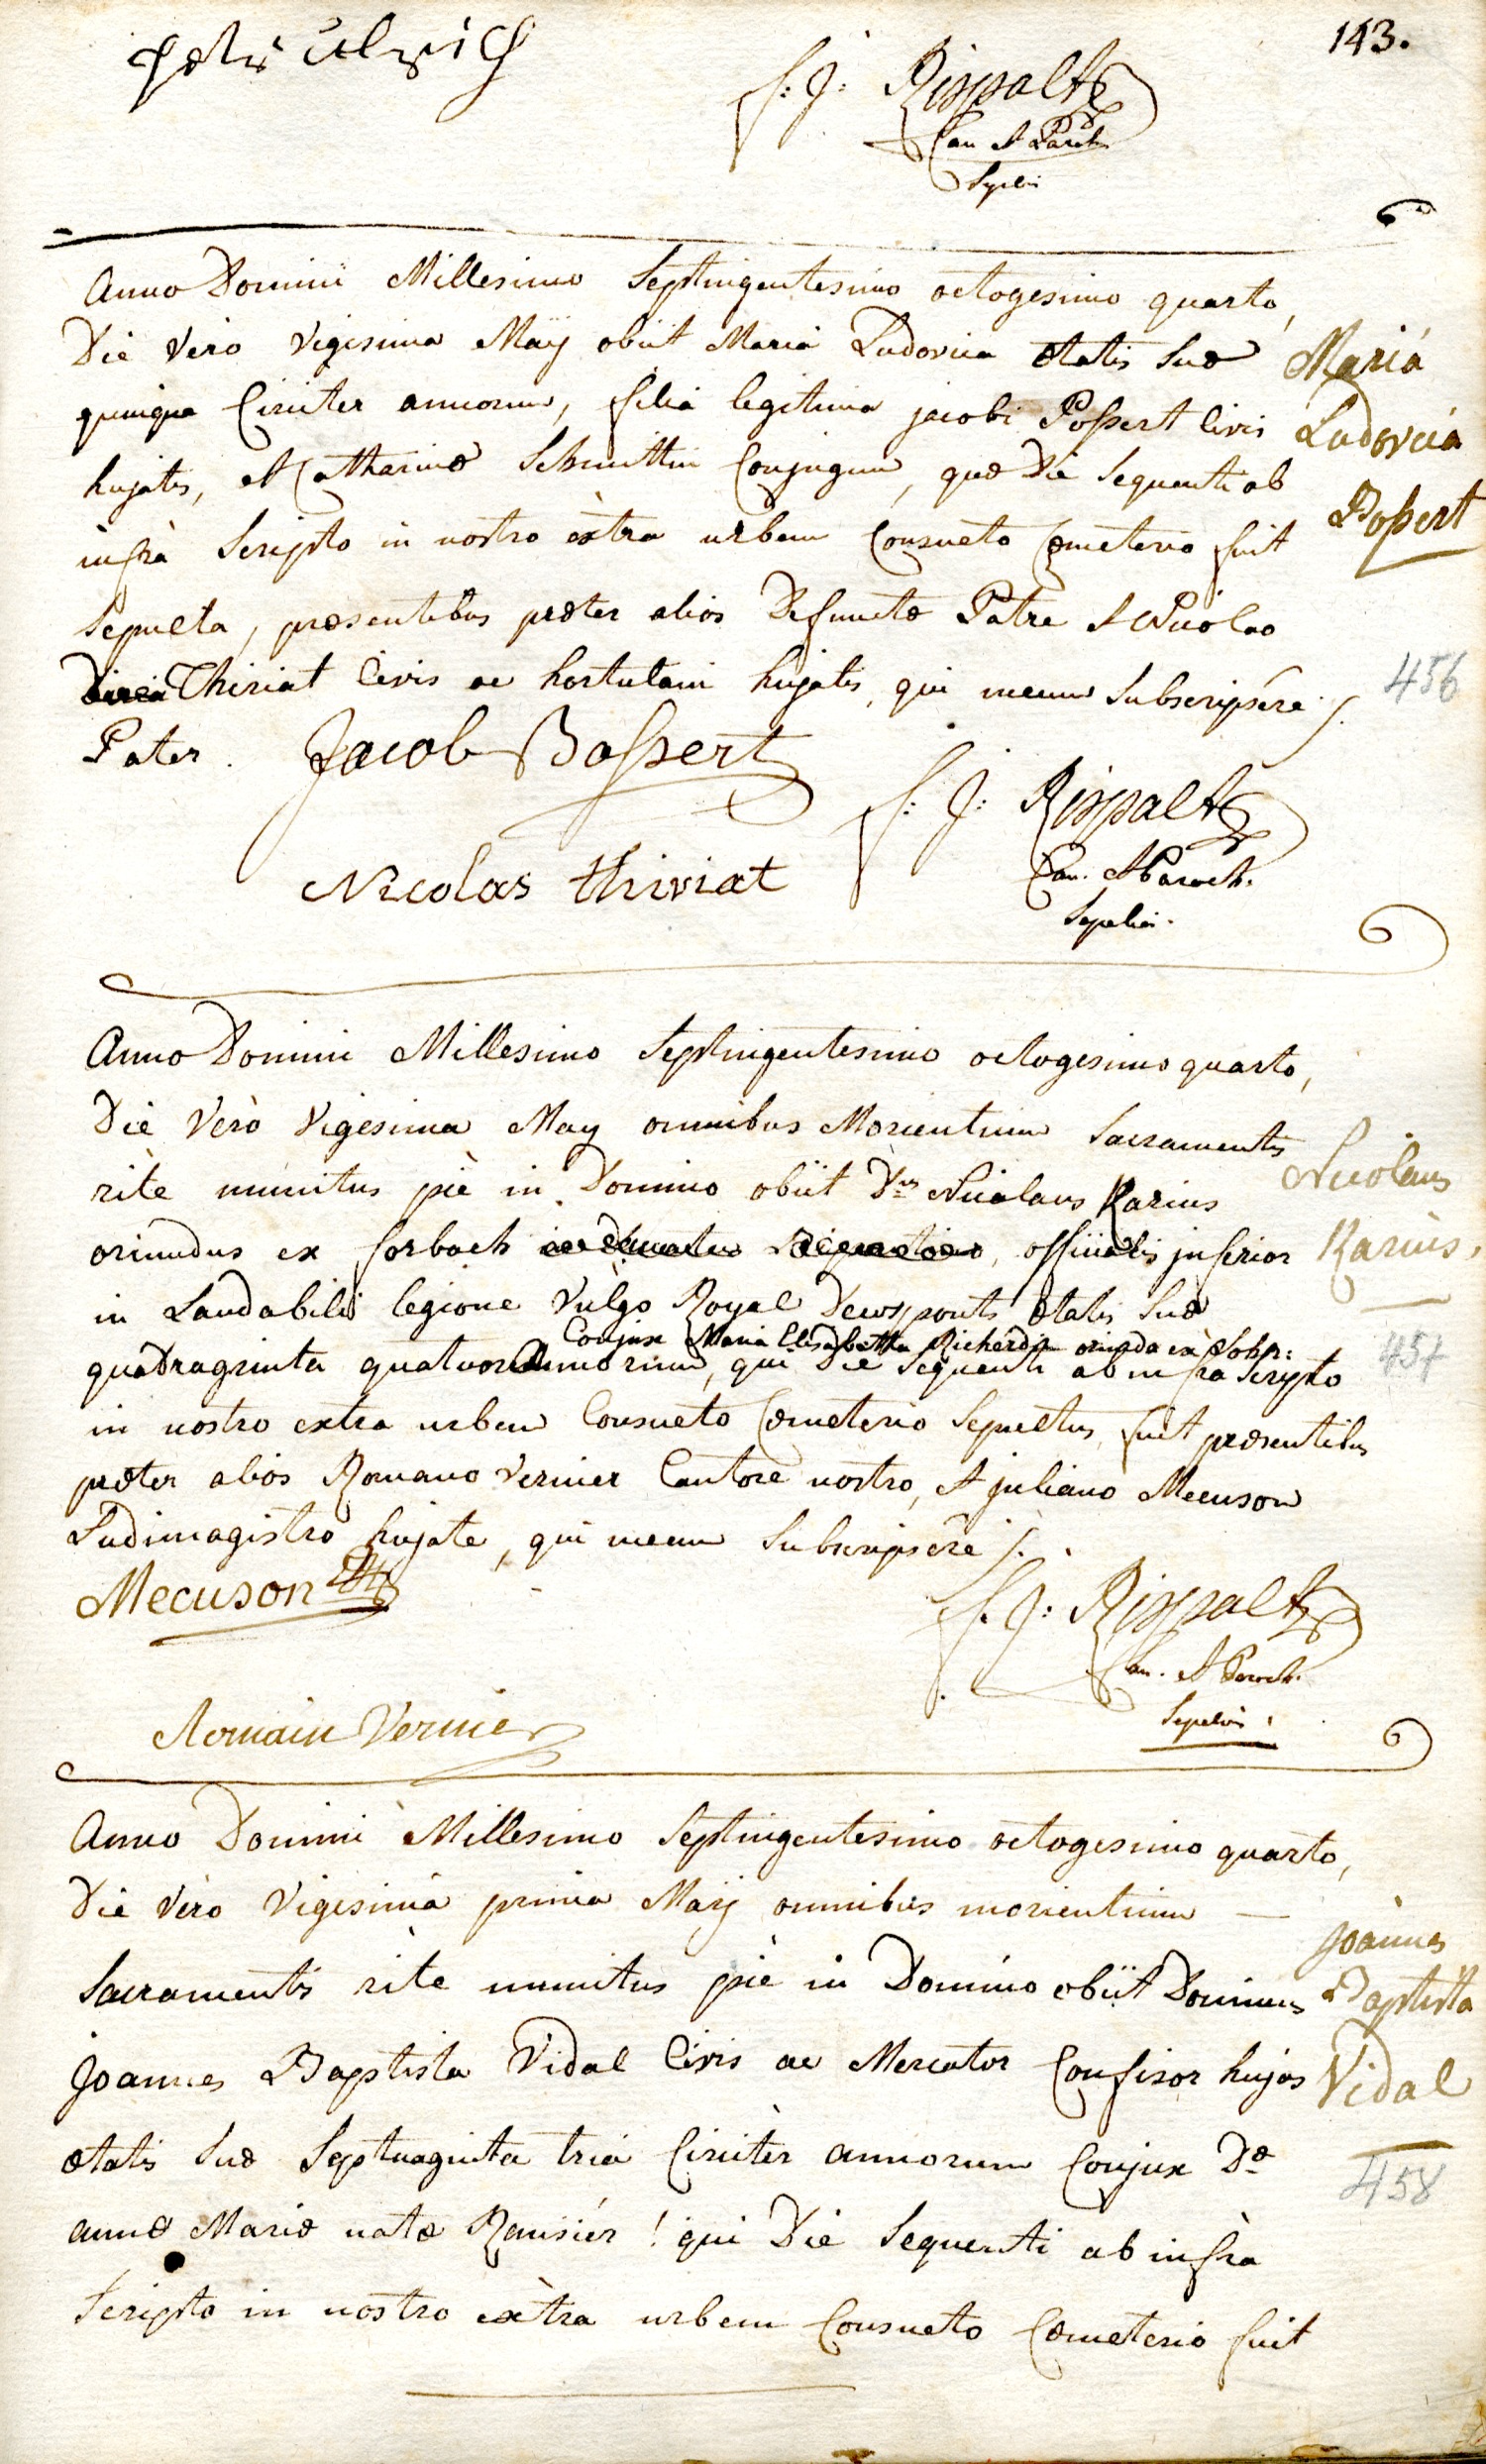 143.
Peter Ulrich
f: J: Rispalt
Can et Paroch
Sepelivi
Anno Domini Millesimo Septingentesimo octogesimo quarto,
Die Vero Vigesima Maij obiit Maria Ludovica ætatis suæ
quinque Circiter annorum, filia legitima jacobi Possert Civis
hujatis, et Catharinæ Schmittin Conjugum, quæ Die sequenti ab
infrà Scripto in nostro extra urbem Consueto Cœmeterio fuit
Sepulta, præsentibus præter alios Defunctæ Patre et Nicolao
Thiriat Civis ac hortulani hujatis, qui mecum Subscripsére ·/.
Maria
Ludovica
Possert
456
Pater. Jacob Bossert
Nicolas thiriat
f: J: Rispalt
Can. et Paroch.
Sepelivi.
Anno Domini Millesimo Septingentesimo octogesimo quarto,
Die Verò Vigesima May omnibus Morientium Sacramentis
ritè munitus piè in Domino obiit Dnus Nicolaus Karius
oriundus ex forbach officialis inferior
in Laudabili legione Vulgo Royal Deuxponts ætatis suæ
Conjux Maria Elisabetha Richerdin
quadraginta quatuor annorum, qui Die sequenti ab infra Scripto
in nostro extra urbem Consueto Cœmeterio Sepultus fuit præsentibus
præter alios Romano Vernier Cantore nostro, et juliano Mecuson
Ludimagistro hujate, qui mecum Subscripsére ·/.
Nicolaus
Karius,
457
Mecuson
Romain Vernier
f. J: Rispalt
Can. et Paroch.
Sepelivi.
Anno Domini Millesimo Septingentesimo octogesimo quarto,
Die Vero Vigesimà primà Maij omnibus morientium —
Sacramentis rite munitus piè in Domino obiit Dominus
Joannes Baptista Vidal Civis ac Mercator Confisor hujas
ætatis suæ Septuaginta tria Circiter annorum Conjux Dæ
annæ Mariæ natæ Ransiér! qui Die Sequenti ab infrà
Scripto in nostro extra urbem Consueto Cœmeterio fuit
Joannes
Baptista
Vidal
458